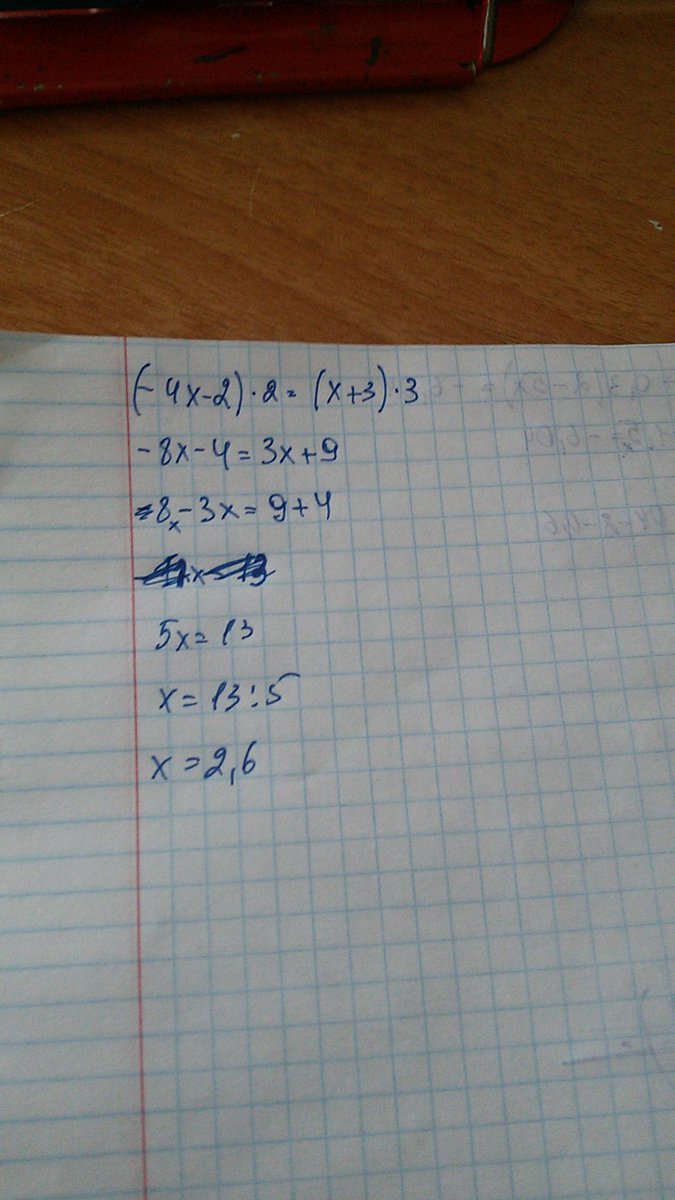 (-4x-2)·2=(x+3)·3
-8x-4=3x+9
-8x-3x=9+4
5x=13
x=13:5
x=2,6